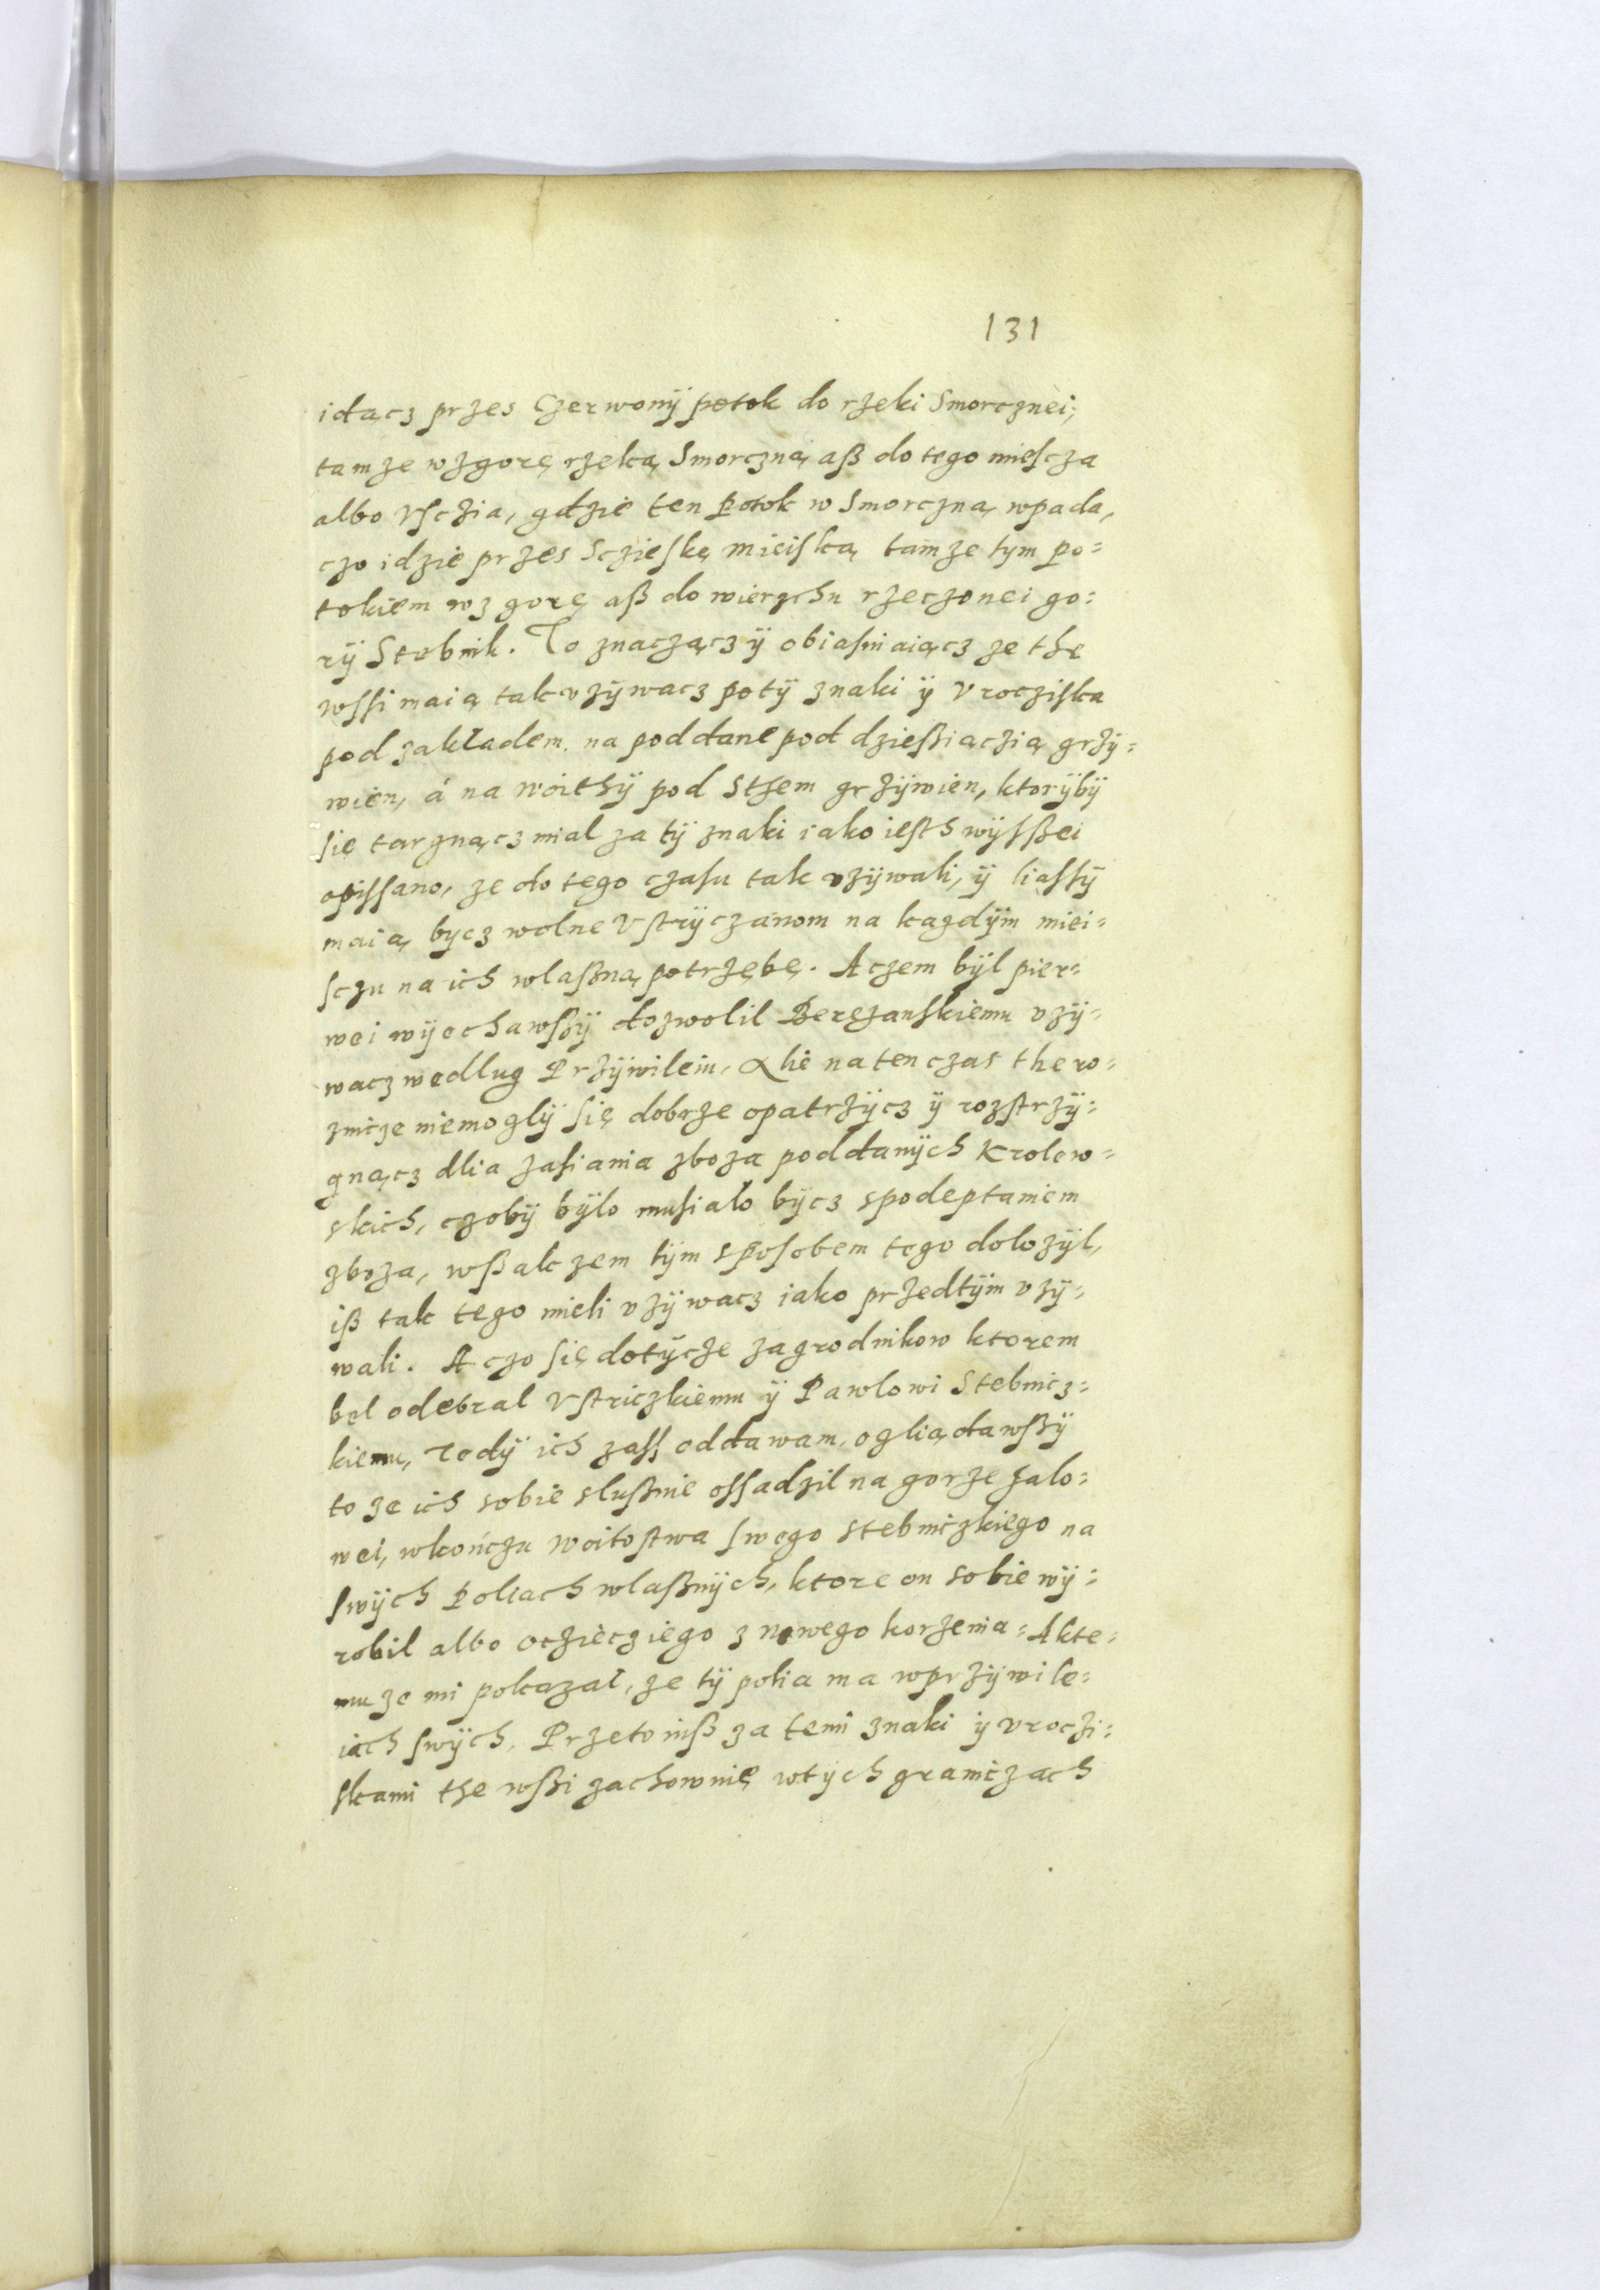 131
idącz przes Czerwonÿ potok do rzeki Smorcznei,
tamze wzgorę rzeką Smorczną aß do tego mieſcza
albo Vſczia, gdzie ten Potok w Smorczną wpada,
czo idzie przes Sczieſkę mieiſką tamze tym po=
tokiem wzgorę aß do wierzchu rzeczonei go=
rÿ Stebnik. To znacząćz ÿ obiaſniaiącz ze the
wſſi maią tak vzÿwacz potÿ znaki ÿ Vrocziſka
pod zakładem na poddane pod dzießiąćzią grzÿ=
wien, á na woithÿ pod Stzem grzÿwien, ktorÿbÿ
ſię targnącz mial za tÿ znaki iako ieſth wÿſßei
opiſſano, ze do tego czaſu tak vzÿwali, ÿ liaſſÿ
maią bycz wolne Vſtrÿczanom na kagdÿm miei=
ſczu na ich wlaßną potrzębę. Aczem bÿl pier=
wei wÿechawßÿ dozwolil Beręzanſkiemu vzÿ=
wacz według Przÿwileiu. Alie natenczas the ro=
znicze niemoglÿ ſię dobrze opatrzÿcz ÿ rozſtrzÿ=
gnącz dlia zaſiania zboza poddanÿch Krolew=
skich, czobÿ bÿlo muſialo bÿcz spodeptaniem
zboza, wßakzem tÿm spoſobem tego dolozÿl,
iß tak tego mieli vzÿwacz iako przedtÿm vzÿ=
wali. A czo ſię dotÿcze zagrodnikow ktorem
bęl odebral Vſtriczkiemu ÿ Pawlowi Stebnicz=
kiemu, Tedÿ ich zaſſ oddawam, ogliądawßÿ
to ze ich sobie slußnie oſſadzil na gorze Jalo=
wei, wkończu woitoſtwa ſwego stebniczkiego na
ſwÿch Poliach wlaßnÿch, ktore on sobie wÿ=
robil albo oczieciego znowego korzenia = Akte=
mu ze mi pokazał, ze tÿ polia ma wprzÿwile=
iach ſwÿch. Przeto iuß za temi znaki ÿ vroczi=
ſkami the wßi zachownię wtÿch graniczach